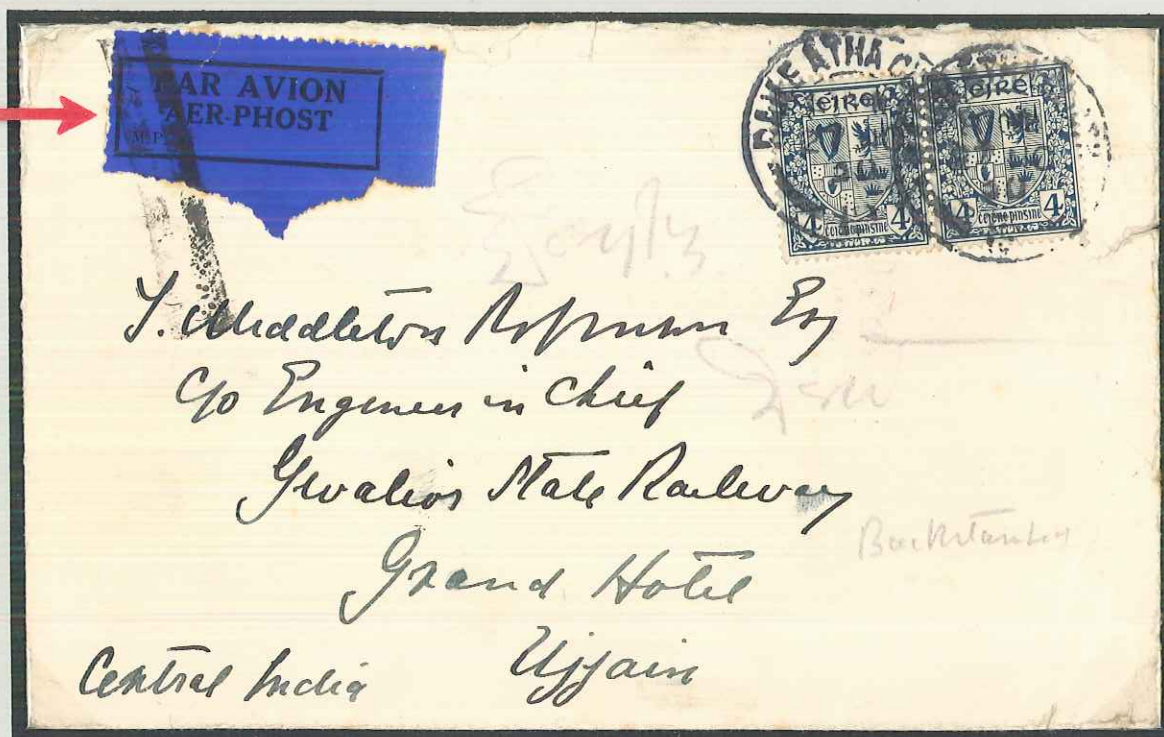 PAR AVION
AER-PHOST
BAILE ATHA
éIRe
éIRe
4 4
ceitRe pinsine
4 4
ceitRe pinsine
Middleton Esq
c/o Engineer in Chief
Gwalior State Railway
Grand Hotel
Ujjain
Central India
Backstamped